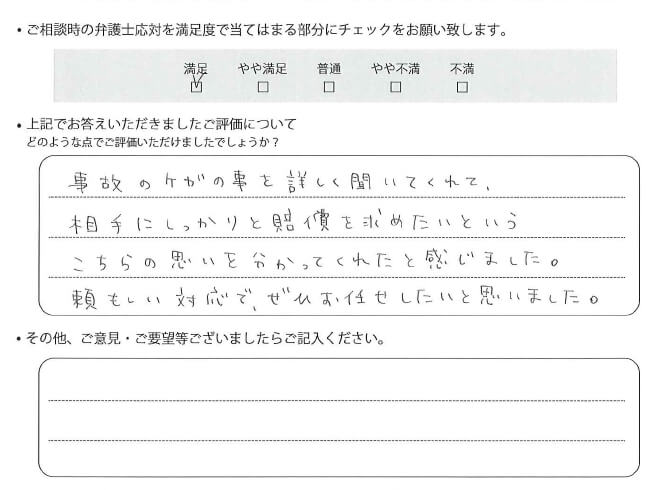 ・ご相談時の弁護士応対を満足度で当てはまる部分にチェックをお願い致します。
満足 やや満足 普通 やや不満 不満
☑ □ □ □ □
・上記でお答えいただきましたご評価について
どのような点でご評価いただけましたでしょうか？
事故のケガの事を詳しく聞いてくれて、
相手にしっかりと賠償を求めたいという
こちらの思いを分かってくれたと感じました。
頼もしい対応で、ぜひお任せしたいと思いました。
・その他、ご意見・ご要望等ございましたらご記入ください。